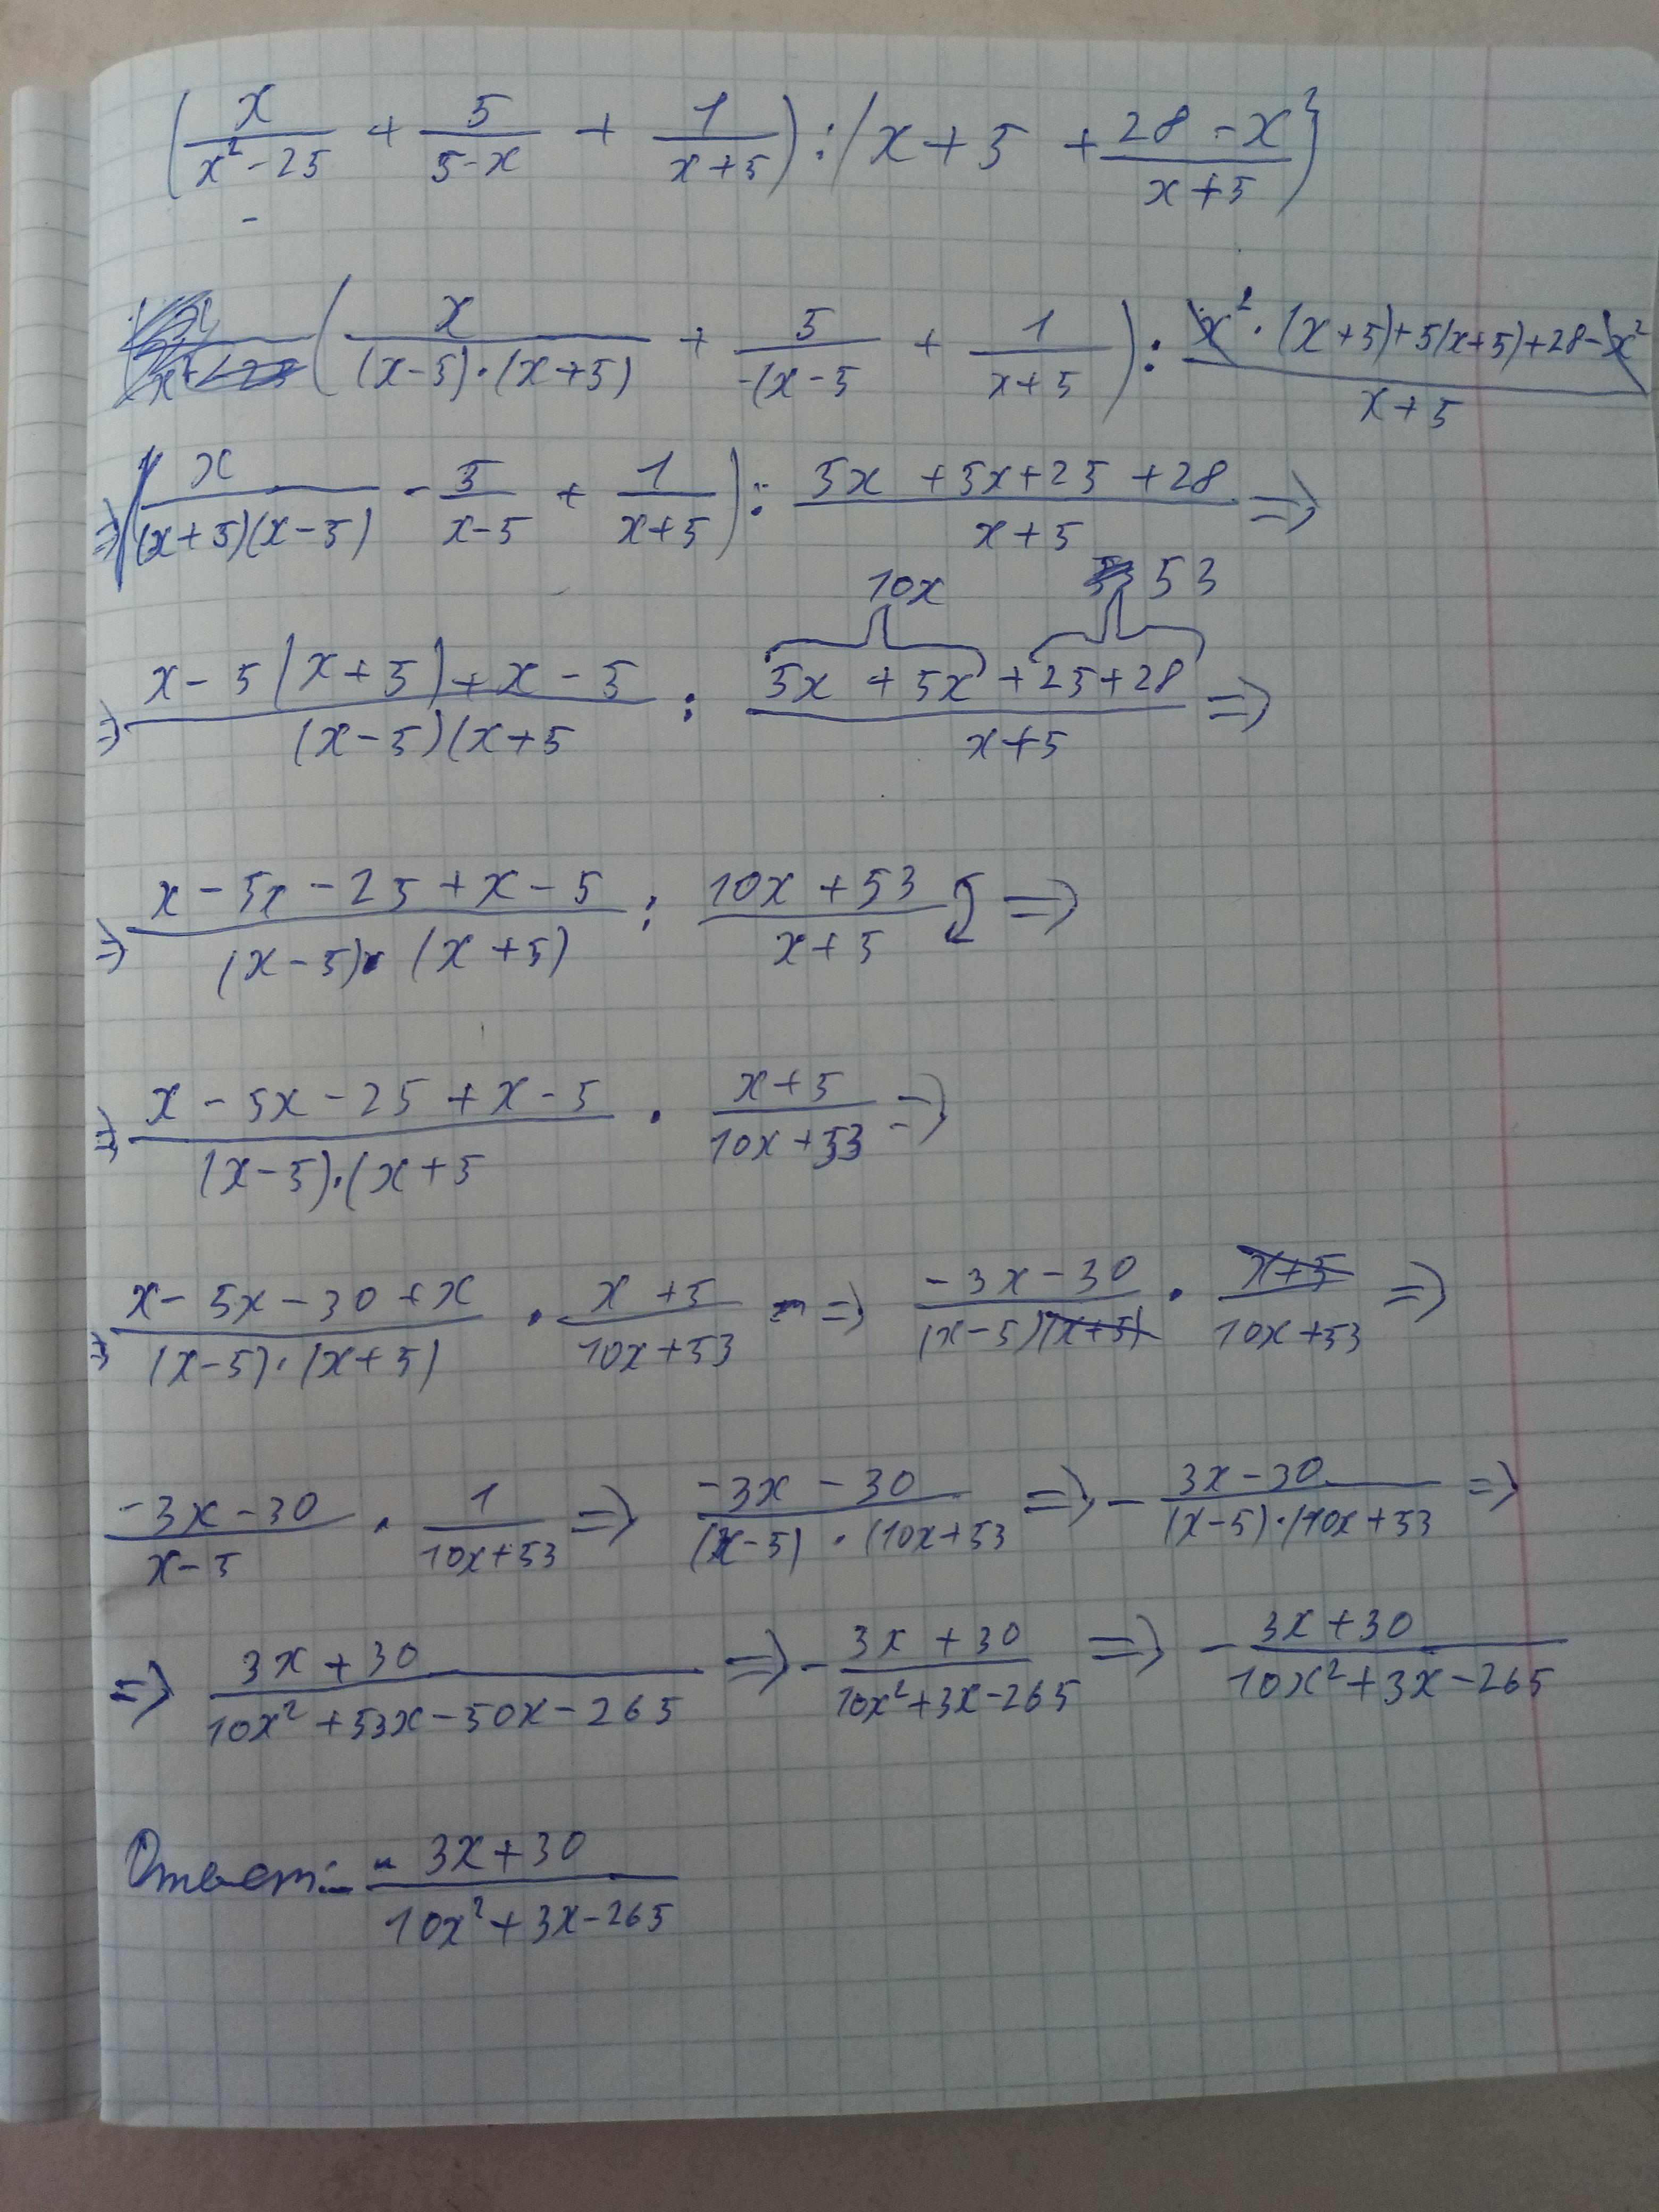 (x/(x²-25) + 5/(5-x) + 1/(x+5)) : (x+5 + (28-x²)/(x+5))
(x/((x-5)·(x+5)) + 5/(-(x-5) + 1/(x+5)) : (x²·(x+5)+5(x+5)+28-x²)/(x+5)
=> (x/((x+5)(x-5)) - 5/(x-5) + 1/(x+5)) : (5x+5x+25+28)/(x+5) =>
10x 53
=> (x-5(x+5)+x-5)/((x-5)(x+5) : (5x+5x+25+28)/(x+5) =>
=> (x-5x-25+x-5)/((x-5)·(x+5)) : (10x+53)/(x+5) =>
=> (x-5x-25+x-5)/((x-5)·(x+5) · (x+5)/(10x+53) =>
=> (x-5x-30+x)/((x-5)·(x+5)) · (x+5)/(10x+53) => (-3x-30)/((x-5)(x+5)) · (x+5)/(10x+53) =>
(-3x-30)/(x-5) · 1/(10x+53) => (-3x-30)/((x-5)·(10x+53) => -(3x-30)/((x-5)·(10x+53) =>
=> (3x+30)/(10x²+53x-50x-265) => -(3x+30)/(10x²+3x-265) => -(3x+30)/(10x²+3x-265)
Ответ: -(3x+30)/(10x²+3x-265)